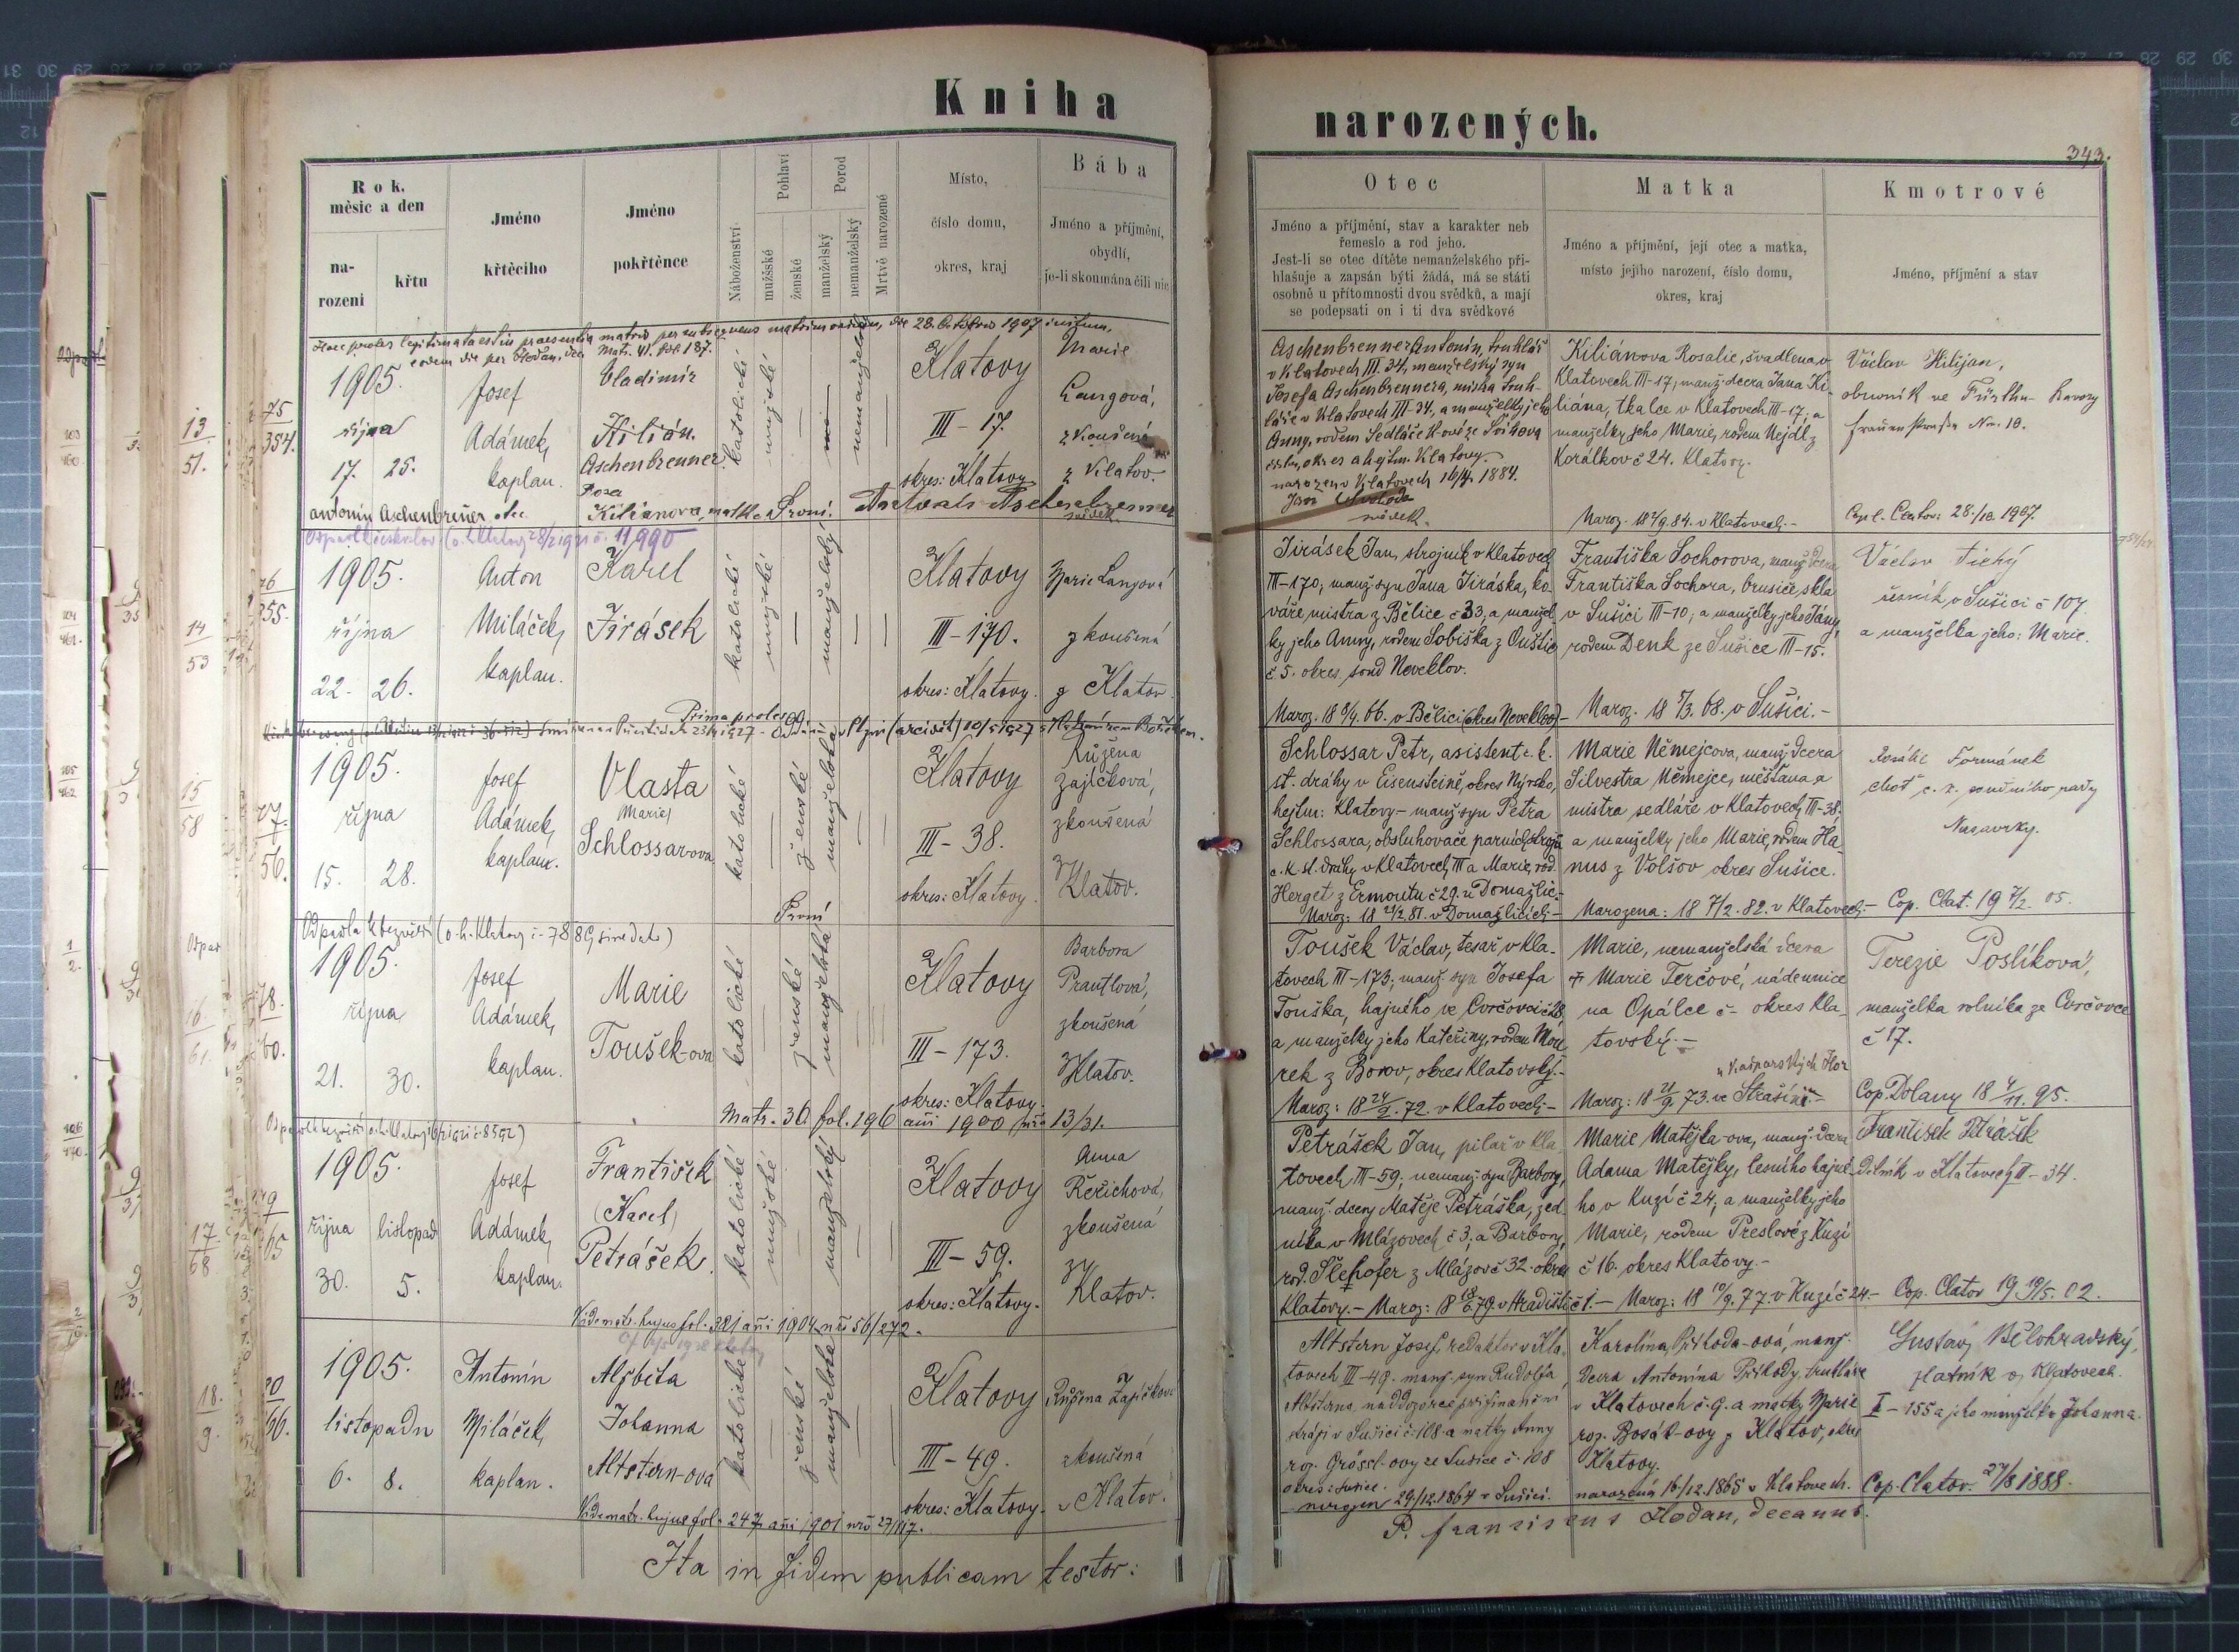 Kniha
narozených.
343.
Rok.
měsíc a den
na-
rození
křtu
Jméno
křtěcího
Jméno
pokřtěnce
Náboženství
Pohlaví
mužšské
ženské
Porod
manželský
nemanželský
Mrtvě narozené
Místo,
číslo domu,
okres, kraj
Bába
Jméno a příjmění,
obydlí,
je-li skoumána čili nic
Otec
Jméno a příjmění, stav a karakter neb
řemeslo a rod jeho.
Jest-li se otec dítěte nemanželského při-
hlašuje a zapsán býti žádá, má se státi
osobně u přítomnosti dvou svědků, a mají
se podepsati on i ti dva svědkové
Matka
Jméno a příjmění, její otec a matka,
místo jejího narození, číslo domu,
okres, kraj
Kmotrové
Jméno, příjmění a stav
Haec proles legitimata est in praesentia matris per subsequens matrimonium, die 28. Octobris 1907 initum,
1905.
října
17. 25.
Josef
Adámek,
kaplan.
Vladimír
Kilián.
Aschenbrenner
katolické
mužské
nemanželské
Klatovy
III - 17.
okres: Klatovy
Marie
Langová,
zkoušená
z Klatov.
Antonín Aschenbrenner otec
Rosa
Kiliánova, matka
První.
Aschenbrenner Antonín, truhlář
v Klatovech III. 34, manželský syn
Josefa Aschenbrennera, mistra truh-
láře v Klatovech III-34, a manželky jeho
Anny, rodem Sedláček-ové ze
okres a hejtm. Klatovy.
narozen v Klatovech 16/4 1884.
svědek.
Kiliánova Rosalie, švadlena v
Klatovech III-17, manž. dcera Jana Ki-
liána, tkalce v Klatovech III-17, a
manželky jeho Marie, rodem Nejdl z
Korálkov č 24. Klatovy.
Naroz. 18 2/9. 84. v Klatovech.-
Václav Kilijan,
obuvník ve
Cop. Clatov: 28./10. 1907.
1905.
října
22. 26.
Anton
Miláček,
kaplan.
Karel
Jirásek
katolické
mužské
manželský
Klatovy
III-170.
okres: Klatovy.
Marie Langová
zkoušená
z Klatov.
Jirásek Jan, strojník v Klatovech
III-170, manž. syn Jana Jiráska, ko-
váře mistra z Bělice č 33, a manžel-
ky jeho Anny, rodem Sobiška z
č 5. okres. soud Neveklov.
Naroz. 18 8/4. 66. v Bělici (okres Neveklov)-
Františka Sochorova, manž. dcera
Františka Sochora, brusiče skla
v Sušici III-10; a manželky jeho Jány,
rodem Denk ze Sušice III-15.
Naroz. 18 5/3. 68. v Sušici.-
Václav Tichý
řezník v Sušici č 107
a manželka jeho: Marie.
Prima proles
1905.
října
15. 28.
Josef
Adámek,
kaplan.
Vlasta
Marie
Schlossar-ova
katolické
ženské
manželské
Klatovy
III - 38.
okres: Klatovy.
Růžena
Zajíčková,
zkoušená
z Klatov.
Schlossar Petr, asistent c. k.
st. dráhy v Eisensteině, okres Nýrsko,
hejtm: Klatovy - manž syn Petra
Schlossara, obsluhovače parních strojů
c. k. st. dráhy v Klatovech III a Marie, rod.
Herget z Ermoutu č 29. u Domažlic.-
Naroz: 18 21/2. 81. v Domažlicích-
Marie Němejcova, manž. dcera
Silvestra Němejce, měšťana a
mistra sedláře v Klatovech III-38.
a manželky jeho Marie, rodem Ha-
nus z Volšov okres Sušice.
Narozena: 18 7/2. 82. v Klatovech-
Rosálie Formánek
choť c. k. soudního rady
Nasavrky.
Cop. Clat. 19 7/2 05.
První
1905.
října
21. 30.
Josef
Adámek,
kaplan.
Marie
Toušek-ova
katolické
ženské
manželské
Klatovy
III - 173.
okres: Klatovy.
Barbora
Prantlová,
zkoušená
z Klatov.
Matr. 36 fol. 196 ani 1900 nro 13/31.
Toušek Václav, tesař v Kla-
tovech III-173; manž. syn Josefa
Touška, hajného ve Cvrčovci č 28,
a manželky jeho Kateřiny, rodem
rek z Borov, okres Klatovský.-
Naroz: 18 24/9. 72. v Klatovech-
Marie, nemanželská dcera
† Marie Terčové, nádennice
na Opálce č - okres Kla-
tovský.-
v Kašparských Hor
Naroz: 18 21/9. 73. ve Strašíně-
Terezie Poslíková,
manželka rolníka ze Cvrčovce
č 17.
Cop. Dolany 18 4/11. 95.
1905.
října listopad
30. 5.
Josef
Adámek,
kaplan.
František
(Karel)
Petrášek.
katolické
mužské
manželský
Klatovy
III - 59.
okres: Klatovy.
Anna
Řežichová,
zkoušená
z Klatov.
Vide matr. hujus fol. 321 ani 1904 nro 56/272.
Petrášek Jan, pilař v Kla-
tovech III-59; nemanž. syn Barbory,
manž. dcery Matěje Petráška, zed-
níka v Mlázovech č 3, a Barbory,
rod. Šlehofer z Mlázov č 32. okres
Klatovy.- Naroz: 18 18/6 79. v Hradišti č 1.-
Marie Matějka-ova, manž. dcera
Adama Matějky, lesního hajné-
ho v Kuzí č 24, a manželky jeho
Marie, rodem Preslové z Kuzí
č 16. okres Klatovy.-
Naroz: 18 10/9. 77. v Kuzí č 24.-
František Petrášek
Dělník v Klatovech II-34.
Cop. Clatov 19 19/5. 02.
1905.
listopadu
6. 8.
Antonín
Miláček,
kaplan.
Alžběta
Johanna
Altstern-ova
katolické
ženské
manželské
Klatovy
III - 49.
okres: Klatovy.
Růžena Zajíčková
zkoušená
v Klatov.
Vide matr. hujus fol. 247 ani 1901 nro 27/117.
Altstern Josef, redaktor v Kla-
tovech III-49. manž. syn Rudolfa
Altsterna, naddozorce při finanční
stráži v Sušici č-108 a matky Anny
roz. Grössl-ovy ze Sušice č. 108
okres: Sušice.
narozen 29/12.1864 v Sušici.
Karolína Příhoda-ová, manž.
dcera Antonína Příhody, truhláře
v Klatovech č. 9. a matky Marie
roz. Bosák-ovy z Klatov, okres
Klatovy.
narozená 16/12.1865 v Klatovech.
Gustav Bělohradský,
zlatník v Klatovech.
I - 155 a jeho manželka Johanna.
Cop. Clatov. 27/8 1888.
Ita in fidem publicam testor:
P. Franciscus Hodan, decanus.